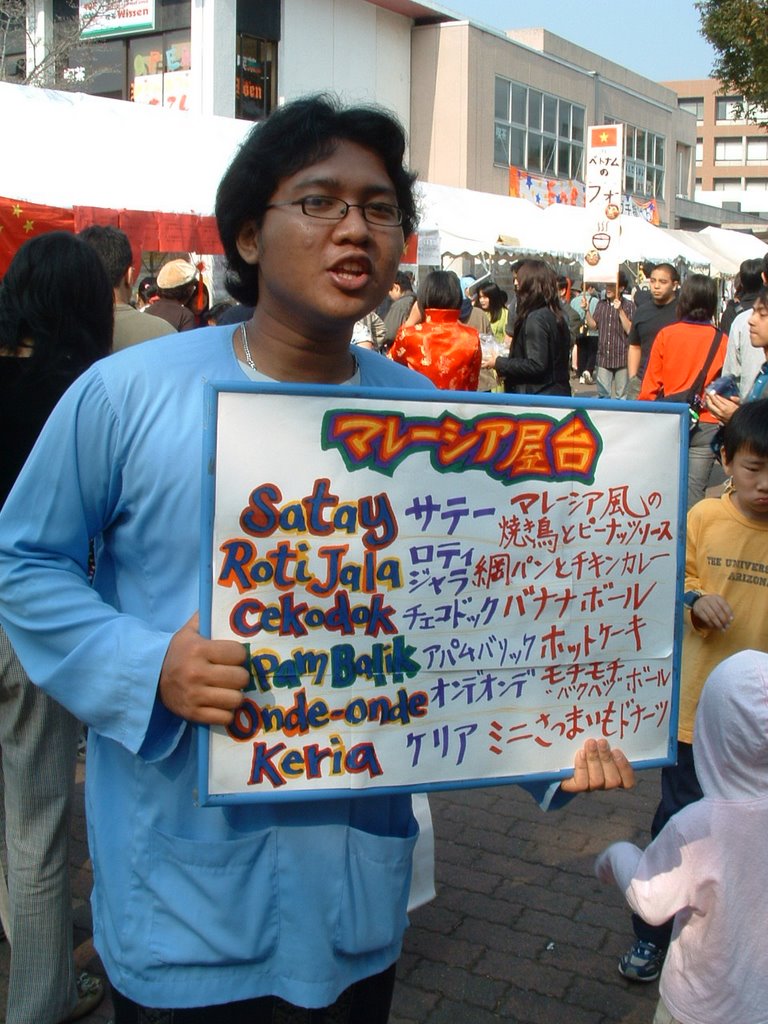 Wissen
ベトナム
の
フォー
マレーシア屋台
Satay サテー マレーシア風の
焼き鳥とピーナッツソース
Roti Jala ロティ
ジャラ 網パンとチキンカレー
Cekodok チェコドック バナナボール
Apam Balik アパムバリック ホットケーキ
Onde-onde オンデオンデ モチモチ
"パクパク" ボール
Keria ケリア ミニさつまいもドーナツ
THE UNIVERS
ARIZONA